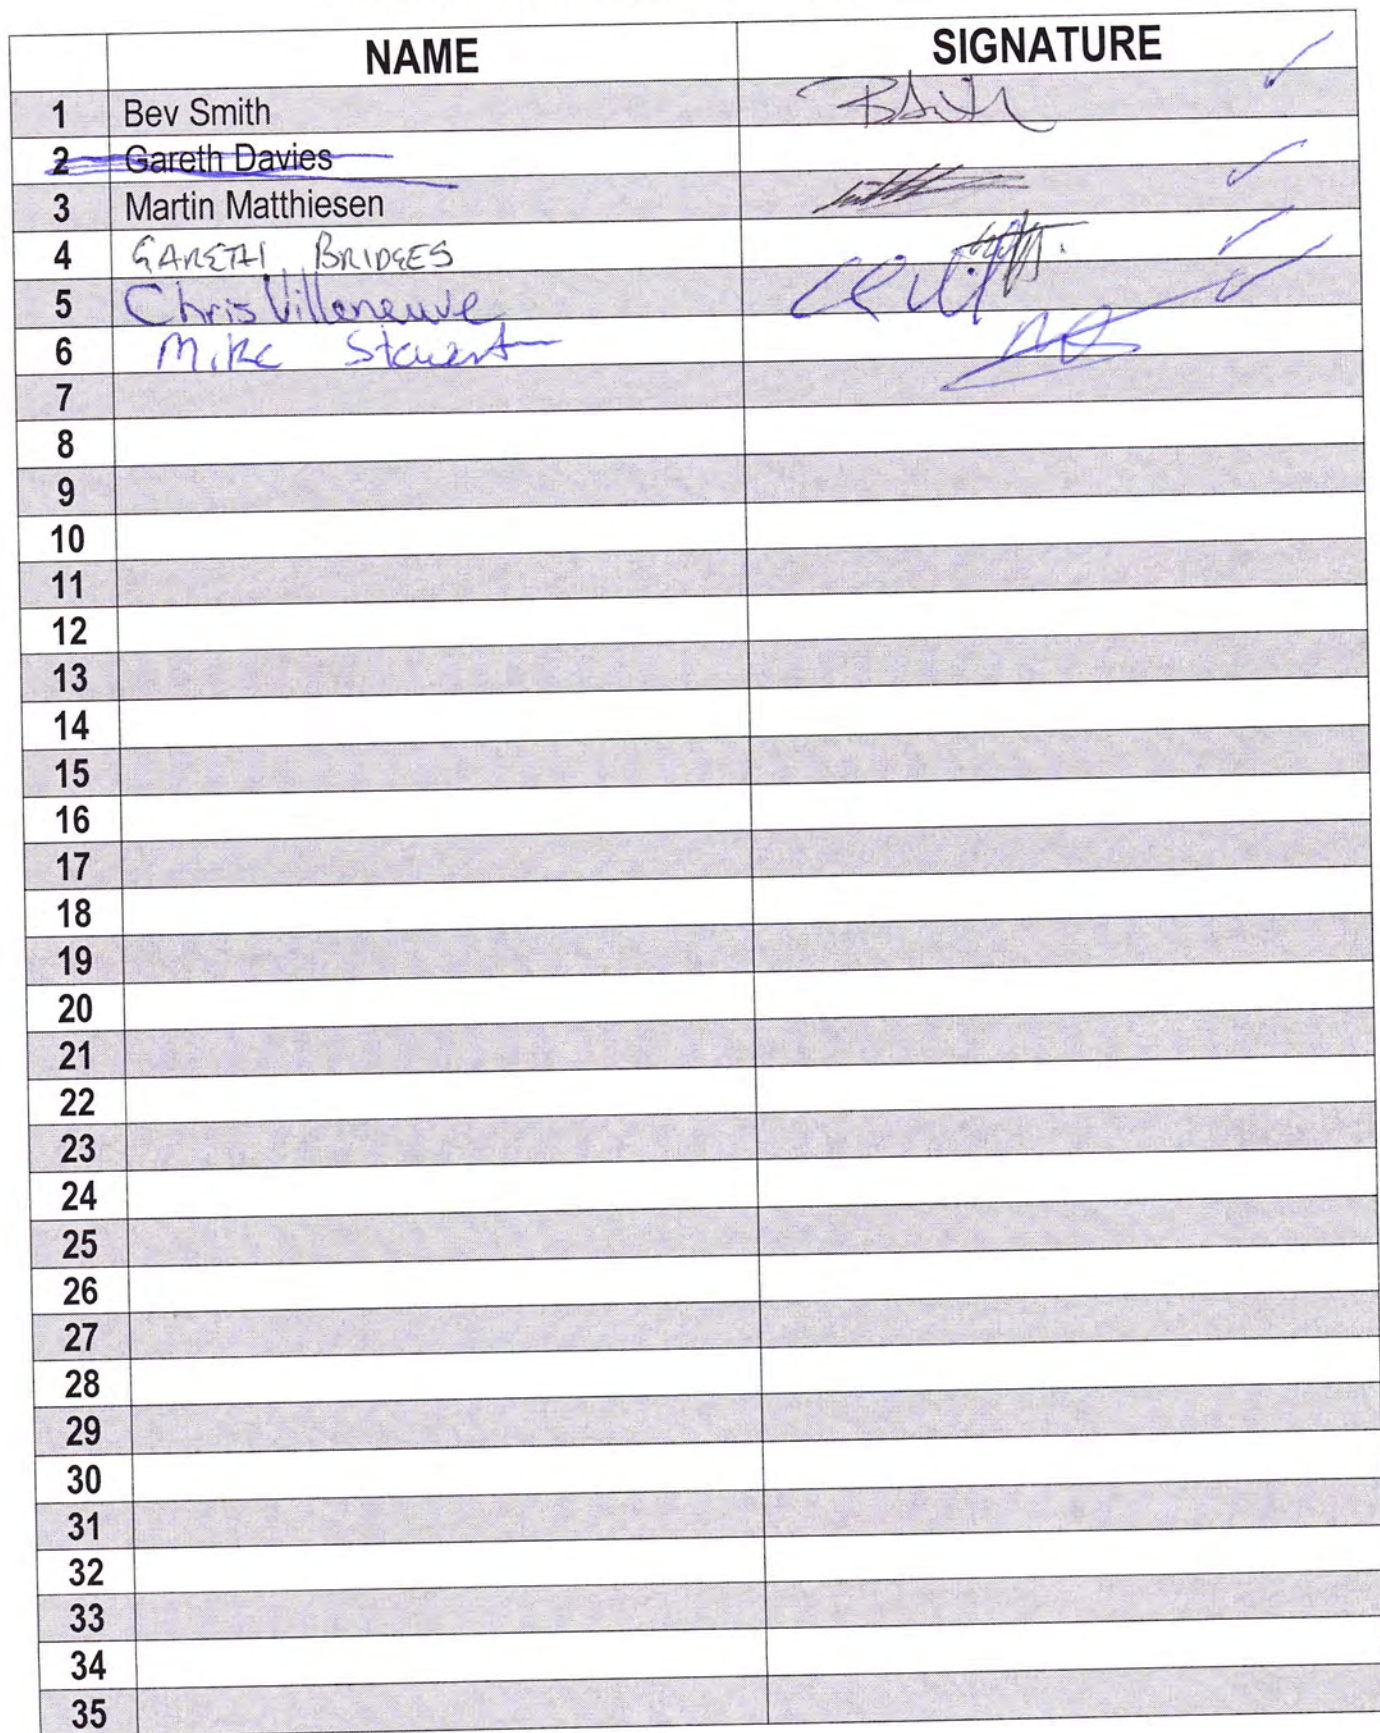 NAME SIGNATURE
1 Bev Smith BSmith
2 Gareth Davies
3 Martin Matthiesen
4 GARETH BRIDGES
5 Chris Villeneuve
6 Mike Stewart
7
8
9
10
11
12
13
14
15
16
17
18
19
20
21
22
23
24
25
26
27
28
29
30
31
32
33
34
35